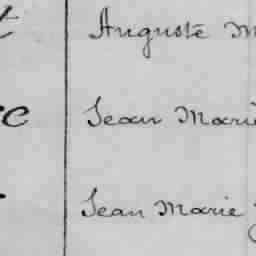 Auguste M
Jean Marie
Jean Marie